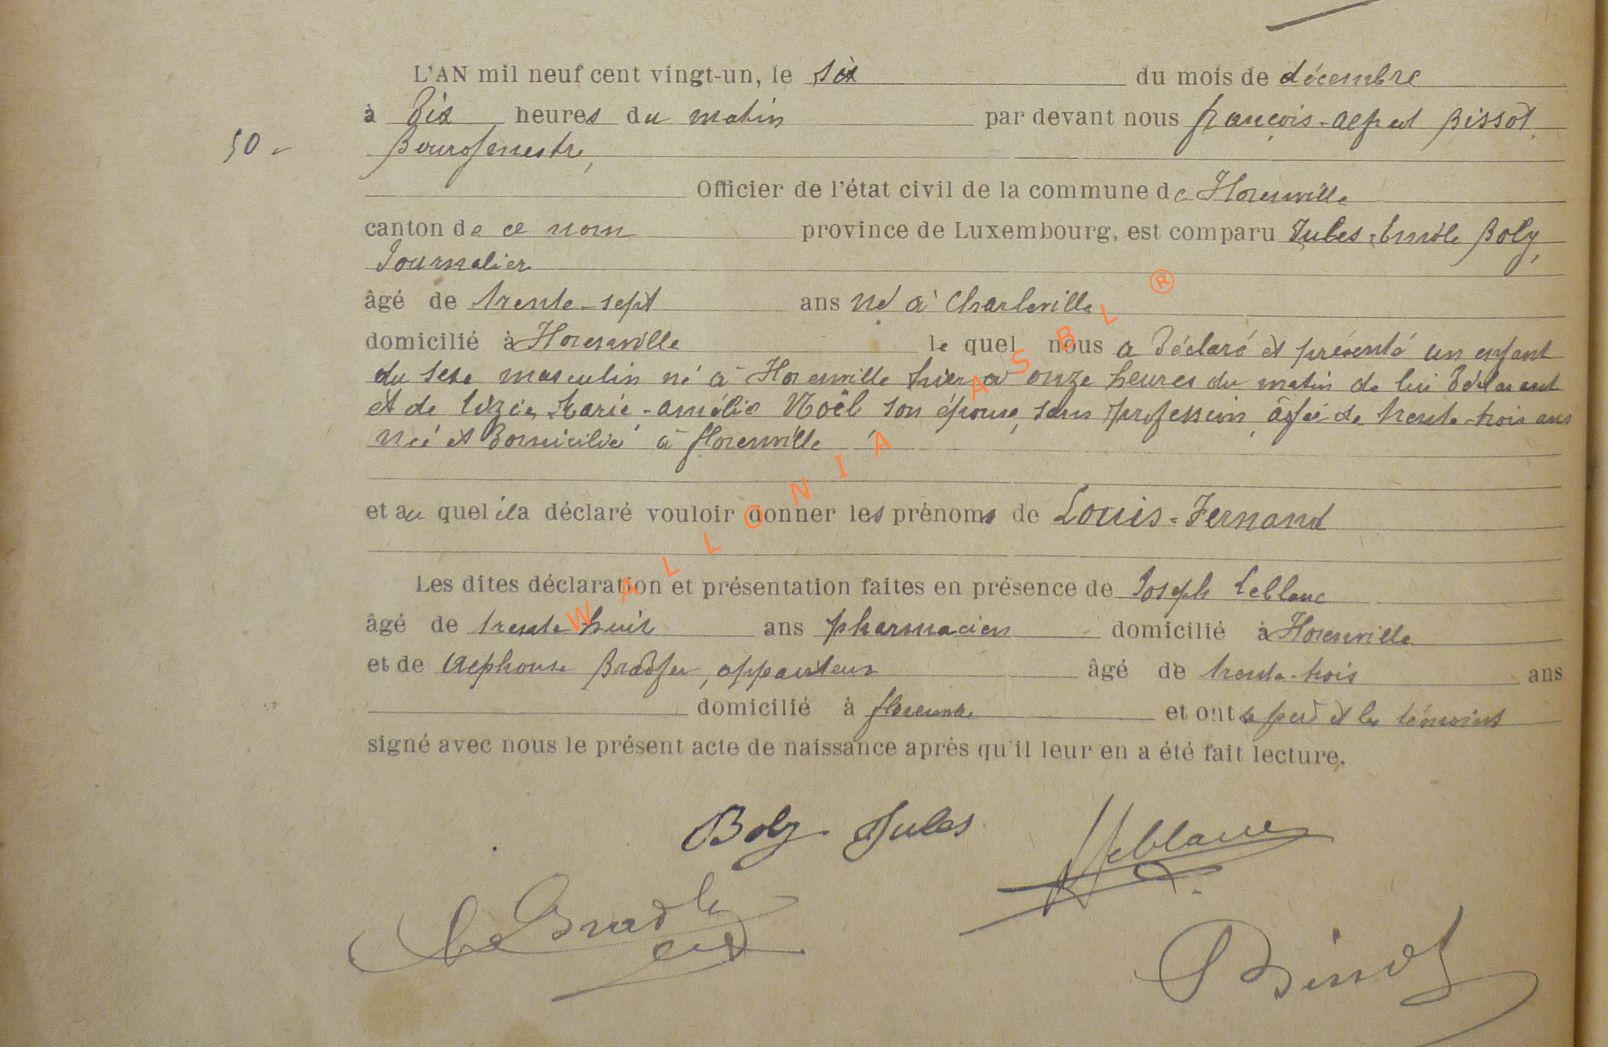 L'AN mil neuf cent vingt-un, le six du mois de décembre
à Dix heures du matin par devant nous François-Alfred Bissot,
50 - Bourgmestre,
Officier de l'état civil de la commune de Florenville
canton de ce nom province de Luxembourg, est comparu Jules-Emile Boly,
Journalier
âgé de trente-sept ans né à Charleville
domicilié à Florenville le quel nous a déclaré et présenté un enfant
du sexe masculin né à Florenville hier à onze heures du matin de lui Déclarant
et de Marie-Amélie Noël son épouse, sans profession, âgée de trente-trois ans
née et Domiciliée à Florenville
et au quel il a déclaré vouloir donner les prénoms de Louis-Fernand
Les dites déclaration et présentation faites en présence de Joseph Leblanc
âgé de trente huit ans pharmacien domicilié à Florenville
et de Alphonse Bradfer, appariteur âgé de trente-trois ans
domicilié à Florenville et ont le père et les témoins
signé avec nous le présent acte de naissance après qu'il leur en a été fait lecture.
Boly Jules Leblanc
Bissot
WALLONIA ASBL ®